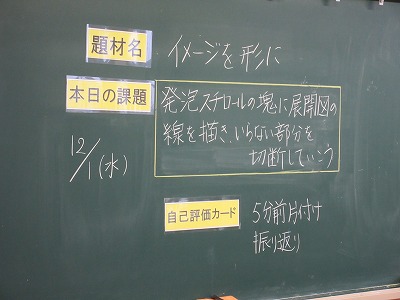 題材名 イメージを形に
本日の課題 発泡スチロールの塊に展開図の
線を描き、いらない部分を
切断していこう
12/1(水)
自己評価カード 5分前片付け
振り返り